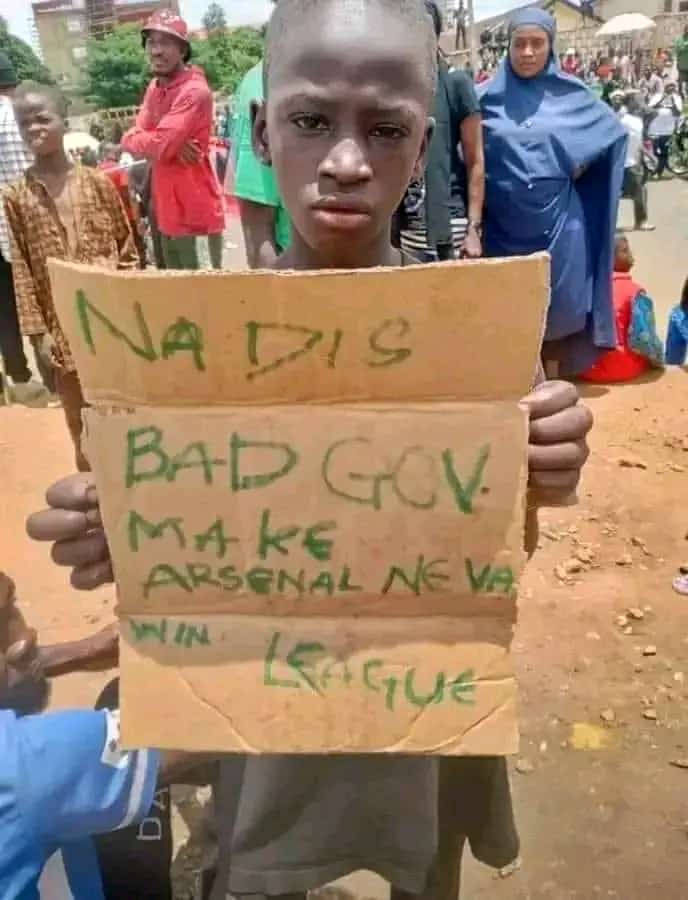 NA DIS
BAD GOV.
MAKE
ARSENAL NEVA
WIN LEAGUE